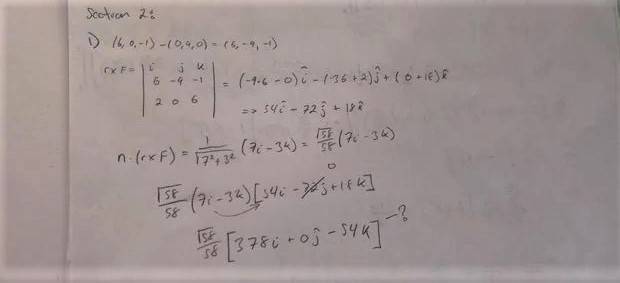 Section 2:
1) (6,0,-1) - (0,9,0) = (6,-9,-1)
r x F = | i j k
6 -9 -1
2 0 6 | = (-9·6 - 0) î - (36+2) ĵ + (0+18) k̂
=> 54î - 72ĵ + 18k̂
n·(r x F) = 1/√7²+3² (7i - 3k) = √58/58 (7i - 3k)
0
√58/58 (7i - 3k) [54i - 72j + 18k]
√58/58 [378i + 0ĵ - 54k] - ?